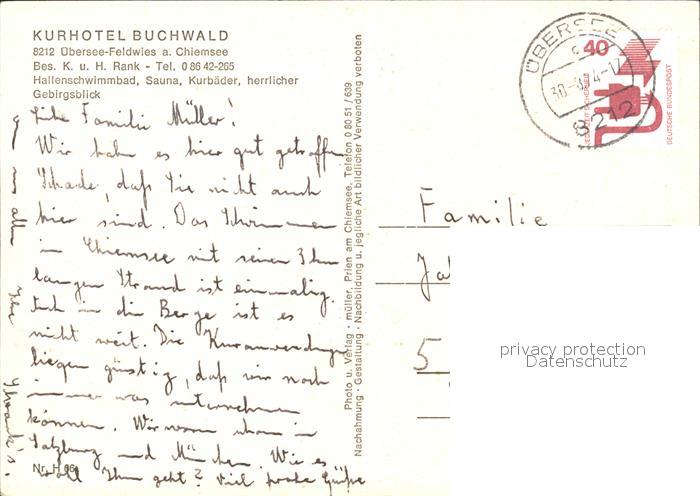 KURHOTEL BUCHWALD
8212 Übersee-Feldwies a. Chiemsee
Bes. K. u. H. Rank - Tel. 0 86 42-265
Hallenschwimmbad, Sauna, Kurbäder, herrlicher
Gebirgsblick
Liebe Familie Müller!
Wir haben es hier gut getroffen
Schade, daß Sie nicht auch
hier sind. Das Schwimmen
im Chiemsee mit seinen 3 km
langen Strand ist einmalig.
Auch in die Berge ist es
nicht weit. Die Kuranwendungen
liegen günstig, daß wir noch
immer was unternehmen
können. Wir waren schon in
Salzburg und München. Wie es
wohl Ihnen geht? Viel frohe Grüße
von uns allen Ihre
Schwank's.
Nr. H 66
Photo u. Verlag · müller, Prien am Chiemsee, Telefon 0 80 51 / 639
Nachahmung · Gestaltung · Nachbildung u. jegliche Art bildlicher Verwendung verboten
ÜBERSEE
8212
40
DEUTSCHE BUNDESPOST
Familie
5
privacy protection
Datenschutz